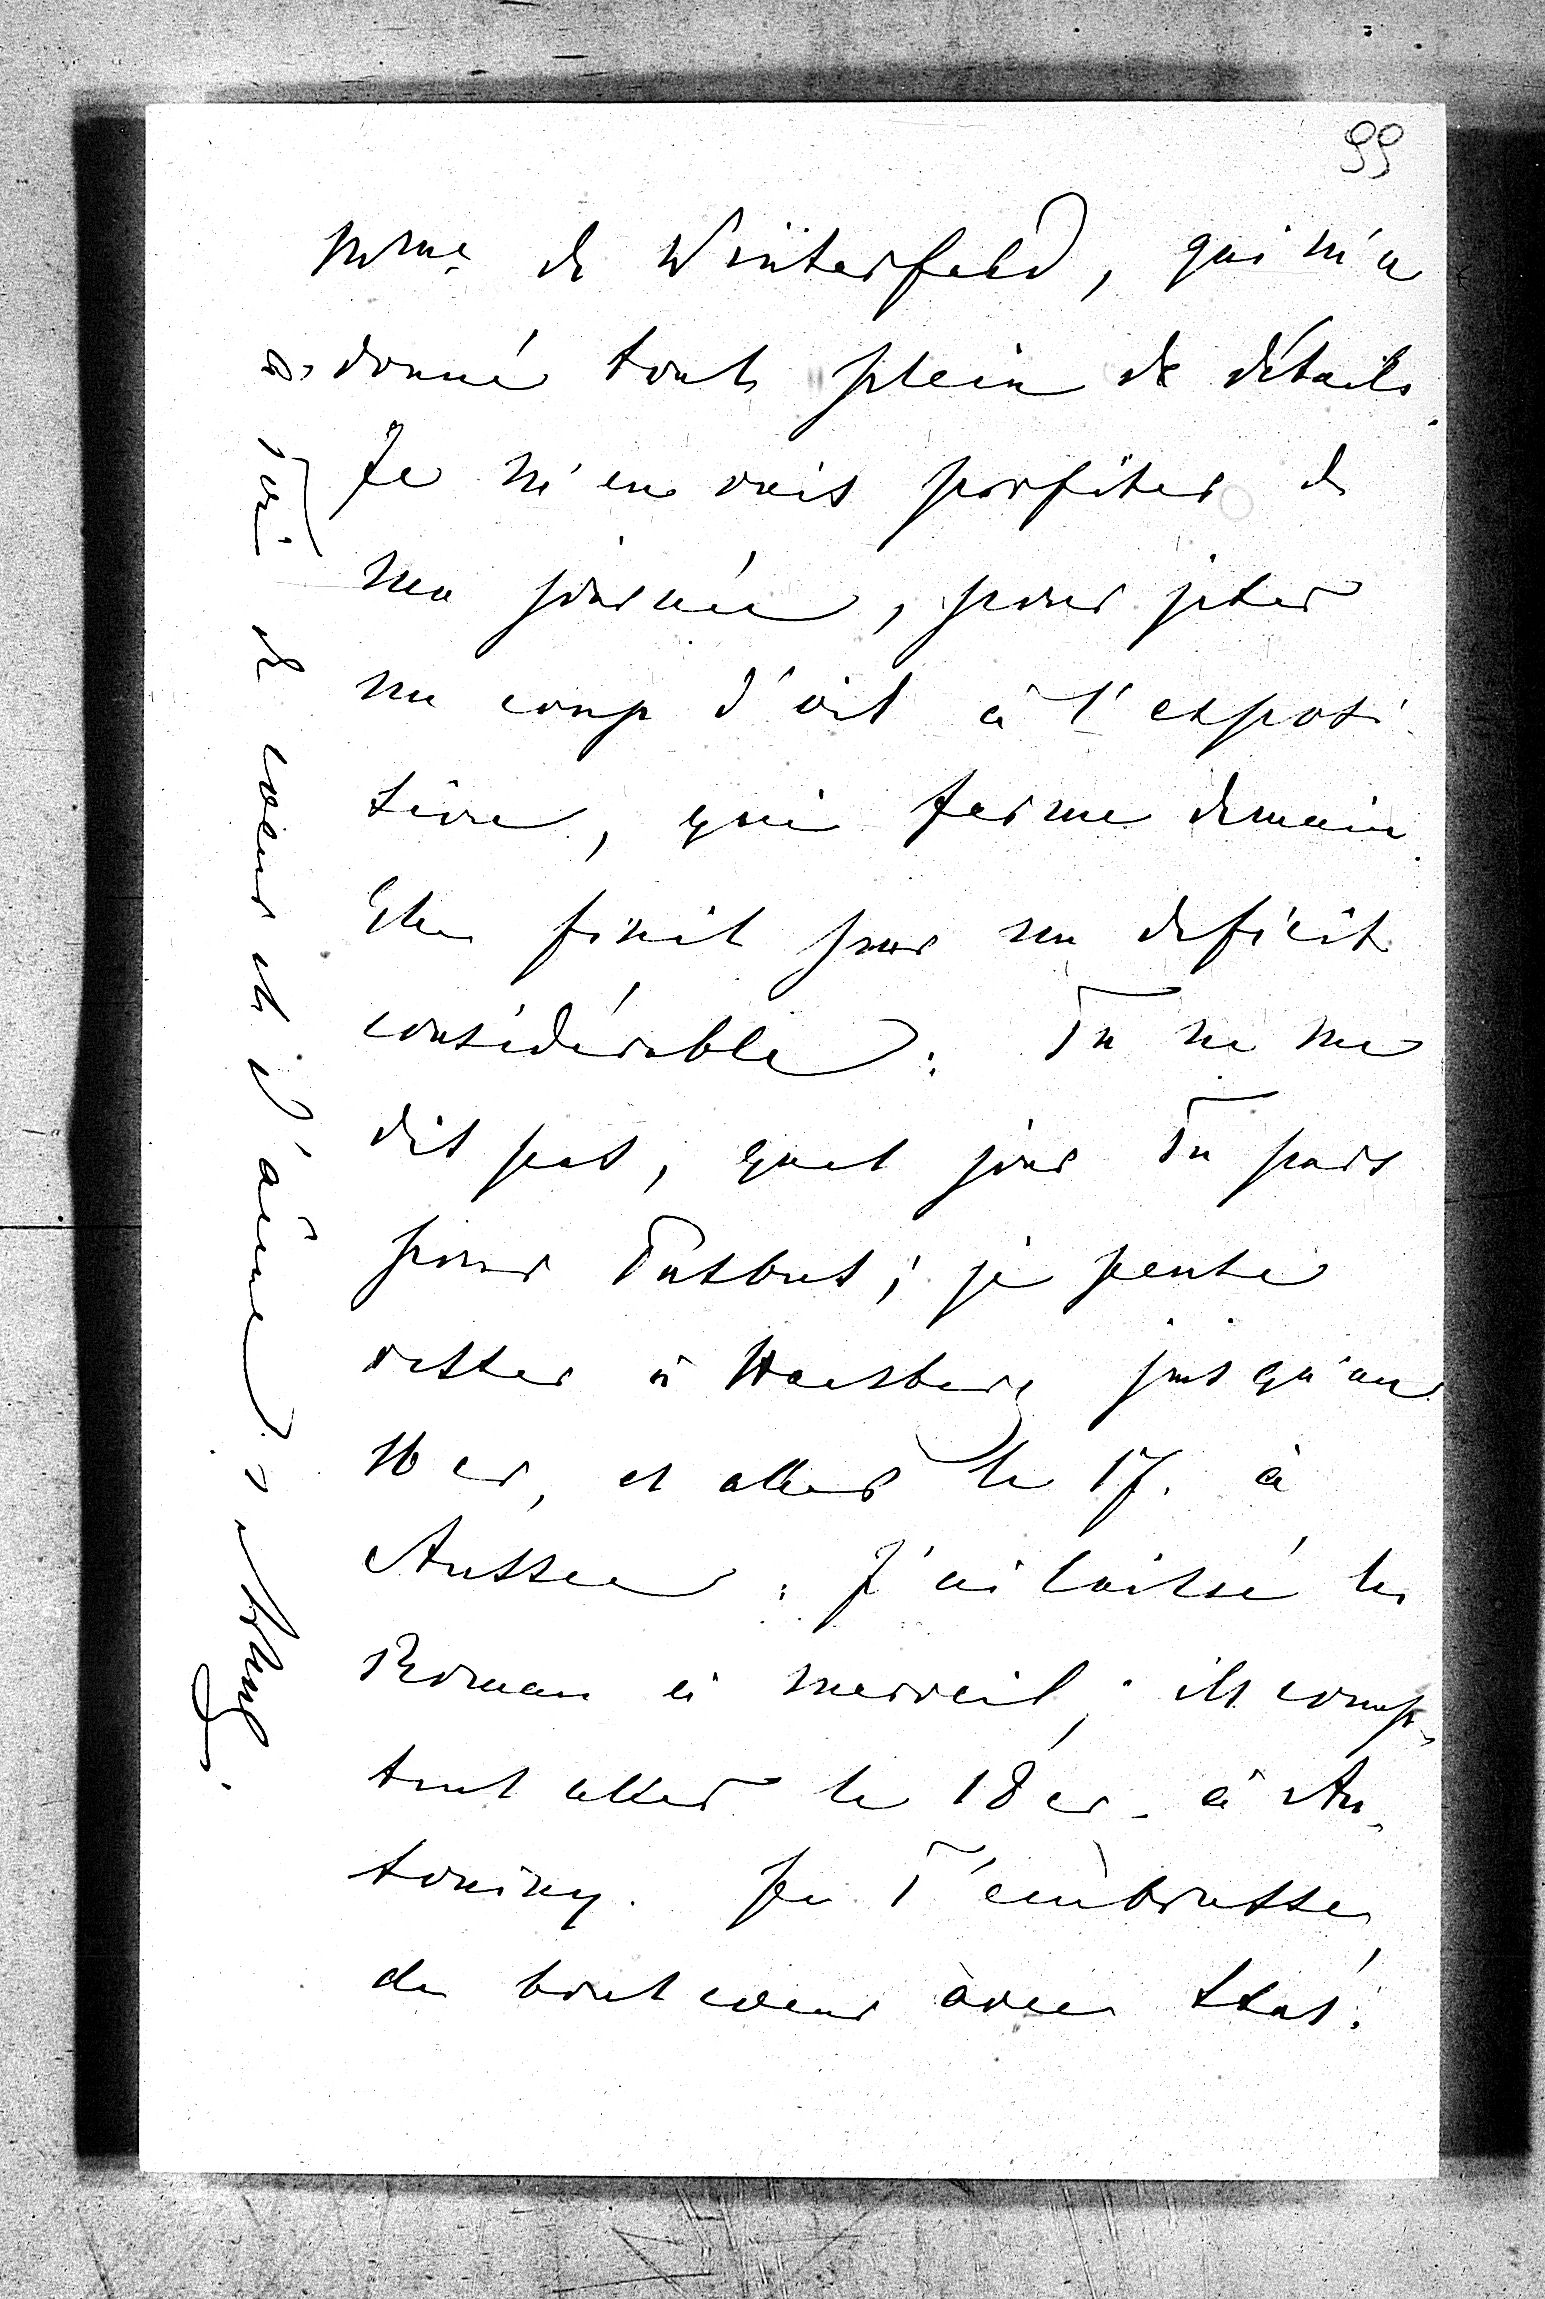 99
Mme de Winterfeld, qui m'a
donné tout plein de détails.
Je m'en vais profiter de
ma journée, pour jeter
un coup d'œil à l'exposi
tion, qui ferme demain.
Elle finit par un deficit
considérable. Tu ne me
dis pas, quel jour Tu pars
pour Tutbus; je pense
rester àHarsberg jusqu'au
16 cr, et aller le 17. à
Aussee. J'ai laissé les
Roman à merveil; ils comp-
tent aller le 18 cr. à An-
toniny. Je T'embrasse
de tout cœur avec Stas.
à Toi de cœur et d'âme